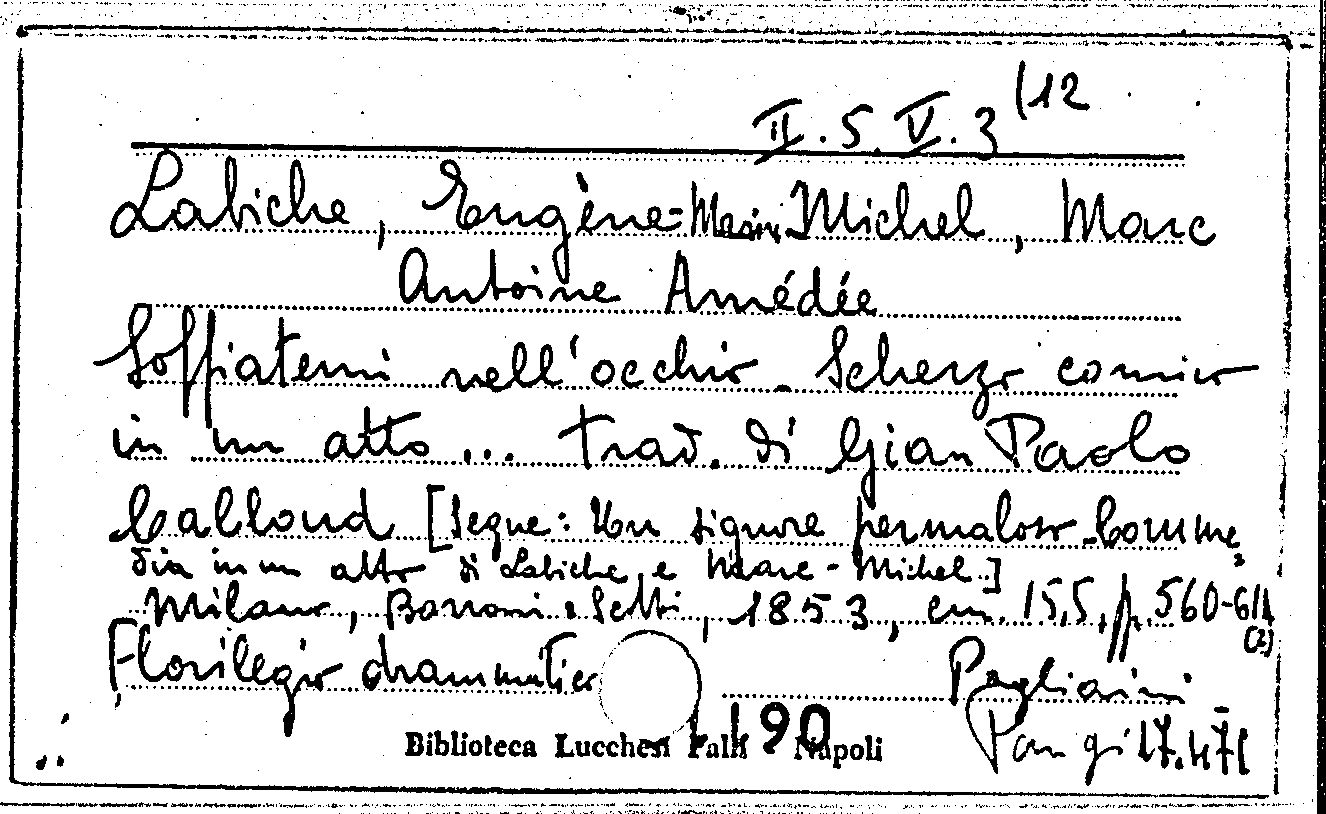 II. 5. V. 3 (12
Labiche, Eugène-Marin Michel, Marc
Antoine Amédée
Soffiatemi nell'occhio - Scherzo comico
in un atto ... trad. di Gian Paolo
Calloud [Segue: Un signore permaloso - Comme=
dia in un atto di Labiche e Marc-Michel.]
Milano, Borroni e Scotti, 1853, cm. 15,5, pp. 560-614
(2)
Florilegio drammatico
Pagliaini
190
Biblioteca Lucchesi Palli Napoli